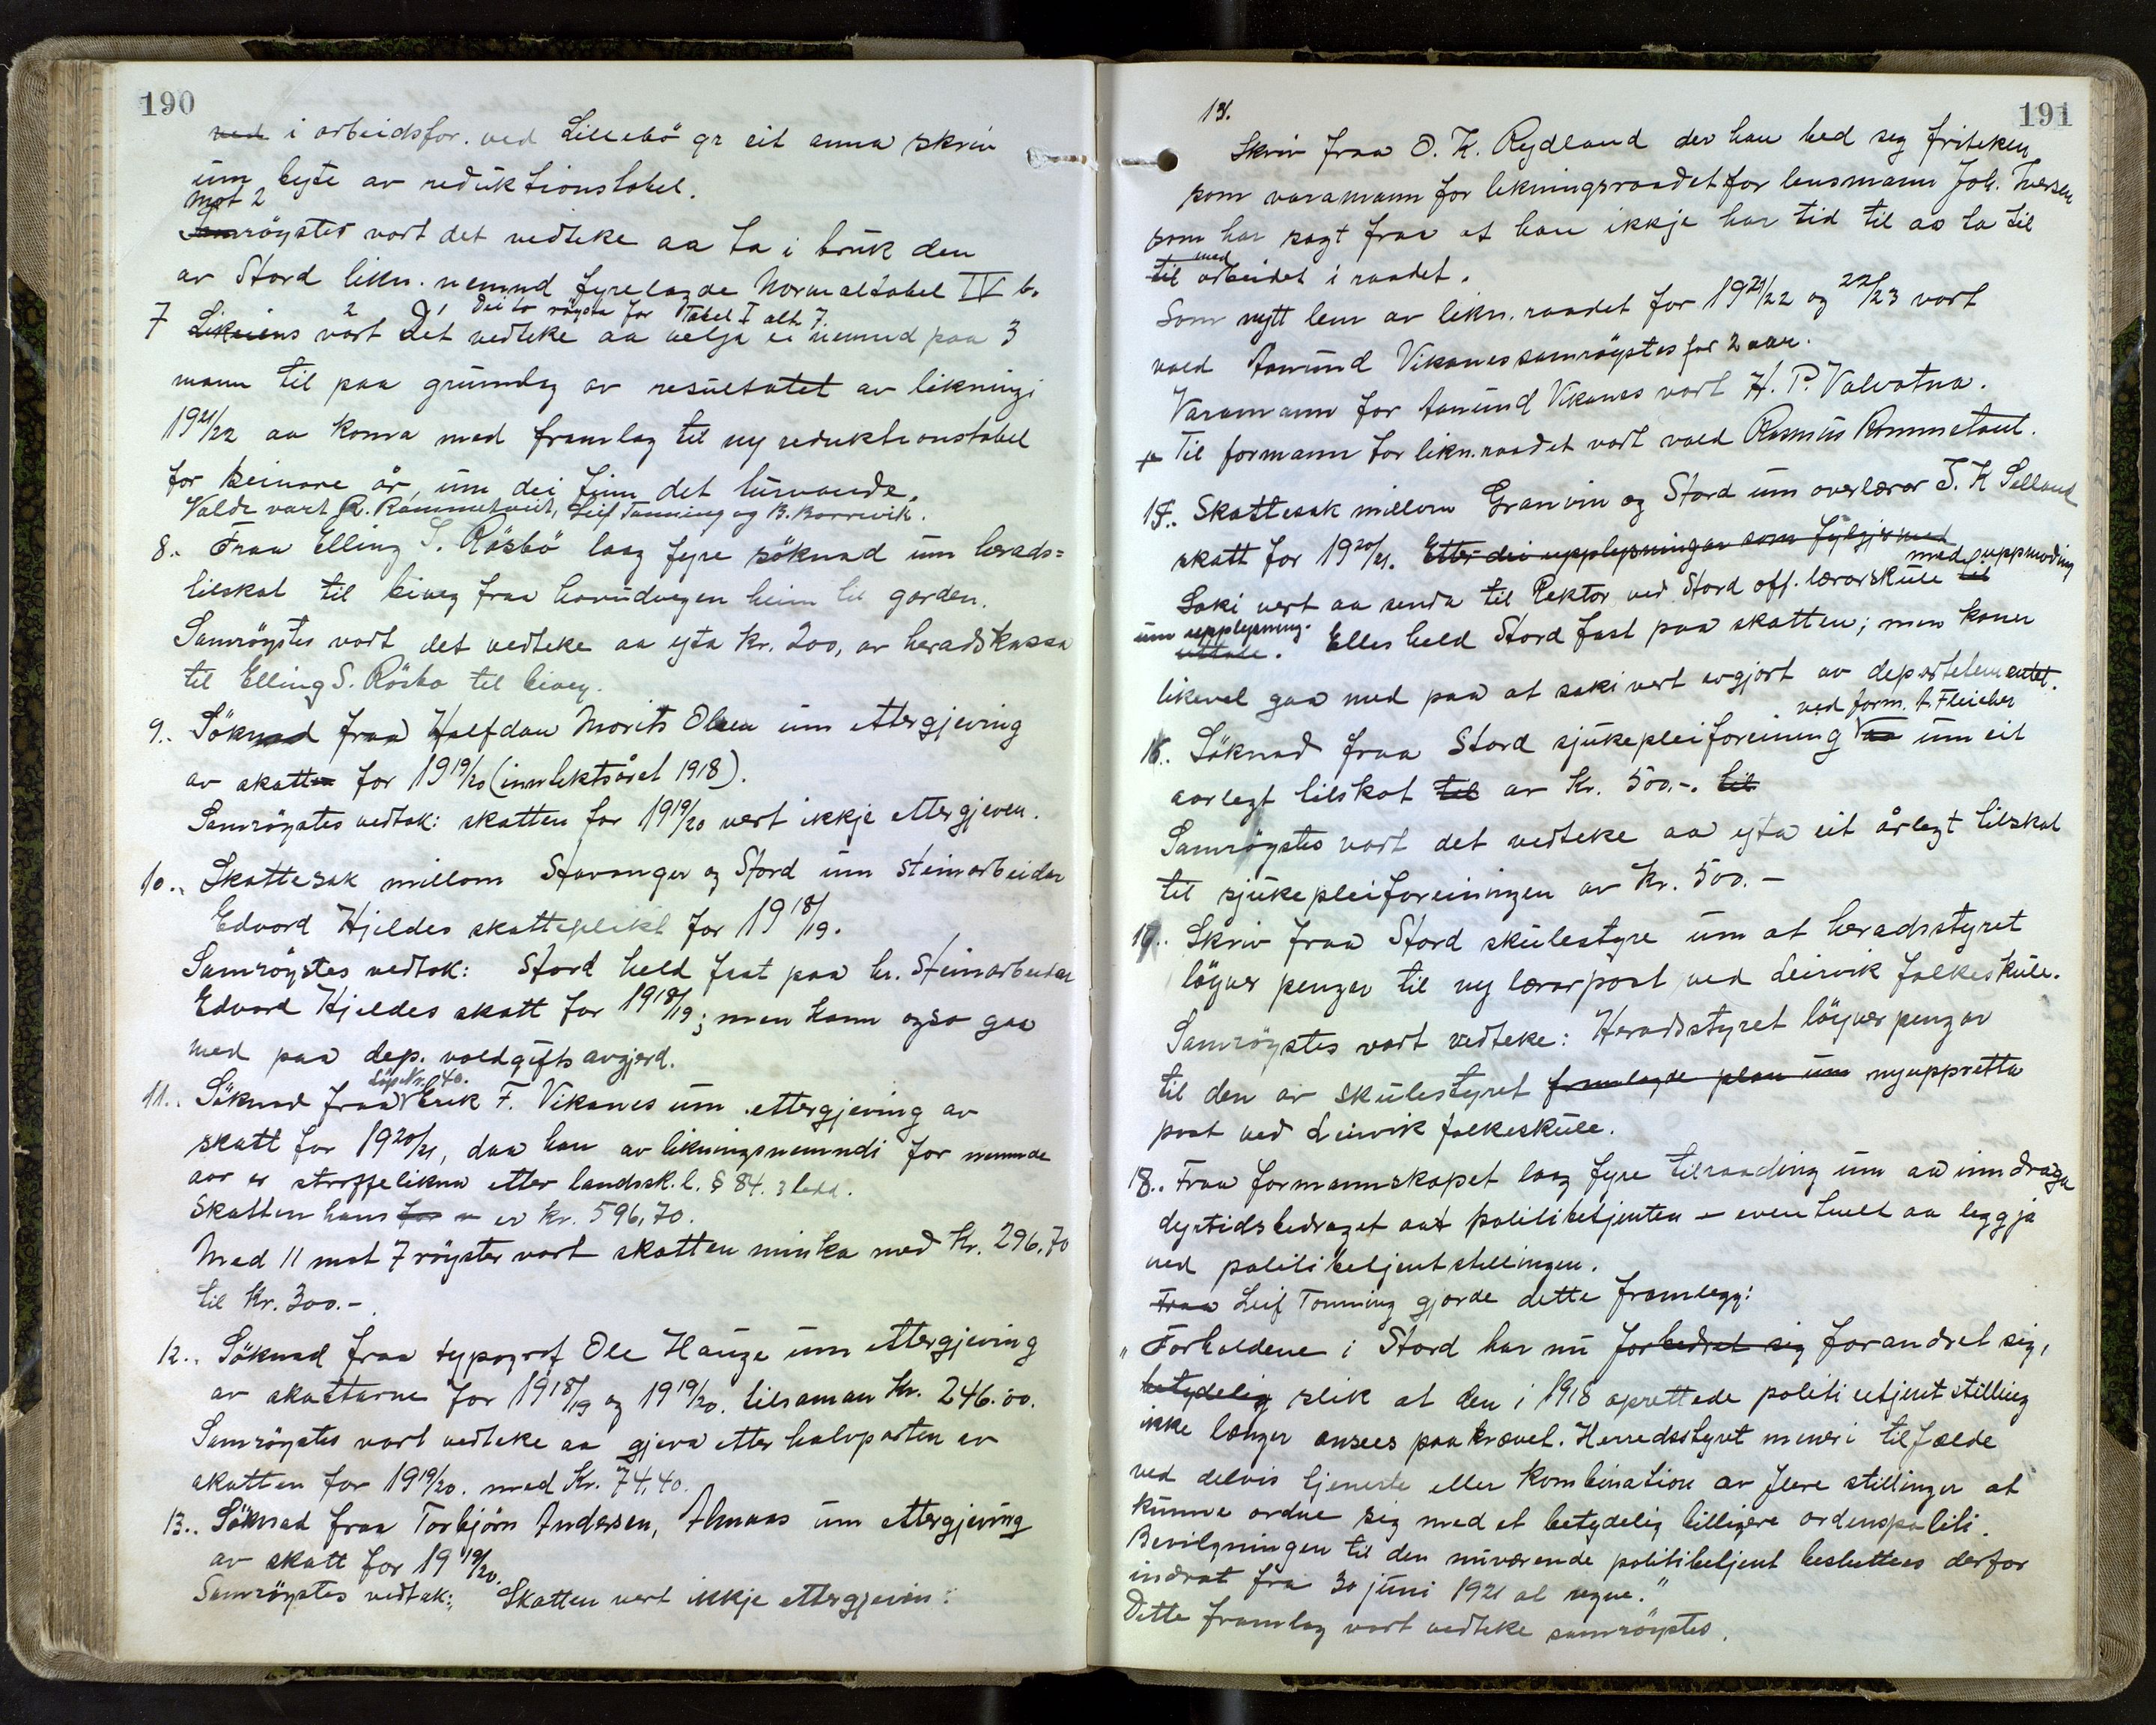 190
ved i arbeidsfor. ved Lillebö gr eit anna skriv
um byte av reduktionstabel.
Mot 2
Samröystes vart det vedteke aa ta i bruk den
av Stord likn. nemnd fyrelagde Normaltabel IV b.
Dei to röysta for Tabel I alt. 7.
7 Likeiens vart Det vedteke aa velja ei nemnd paa 3
mann til paa grunnlag av resultatet av likningi
1921/22 aa koma med framlag til ny reduktionstabel
for seinare år, um dei finn det turvande.
Valde vart R. Rommetveit, Leif Tonning og B. Borrevik.
8. Fraa Elling S. Røsbö laag fyre söknad um herads-
tilskot til biveg fraa hovudvegen heim til garden.
Samröystes vart det vedteke aa yta kr. 200, av heradskassa
til Elling S. Røsbø til bivey.
9. Söknad fraa Halfdan Morits Olsen um ettergjeving
av skatten for 1919/20 (inntektsåret 1918).
Samröystes vedtok: skatten for 1919/20 vert ikkje ettergjeven.
10. Skattesak millom Stavanger og Stord um steinarbeidar
Edvard Hjeldes skatteplikt for 1918/19.
Samröystes vedtok: Stord held fast paa hr. Steinarbeidar
Edvard Hjeldes skatt for 1918/19; men kann ogso gaa
med paa dep. voldgifts avgjerd.
Löp Nr. 40.
11. Söknad fraa Erik F. Vikanes um ettergjeving av
skatt for 1920/21, daa han av likningsnemndi for nemnde
aar er straffelikna etter landssk.l. § 84. 3 ledd.
Skatten hans for er kr. 596,70.
Med 11 mot 7 röyster vart skatten minka med Kr. 296,70
til Kr. 300.-
12. Söknad fraa typograf Ole Hauge um ettergjeving
av skattarne for 1918/19 og 1919/20. tilsaman Kr. 246.00.
Samröystes vart vedteke aa gjeva etter halvparten av
skatten for 1919/20. med Kr. 74,40.
13. Söknad fraa Torbjörn Andersen, Almaas um ettergjeving
av skatt for 1919/20.
Samröystes vedtak: Skatten vert ikkje ettergjeven.
191
14.
Skriv fraa O. K. Rydland der han bed seg friteken
som varamann for likningsraadet for lensmann Joh. Iversen
som har sagt fraa at han ikkje har tid til aa ta til
med
til arbeidet i raadet.
Som nytt lem av likn. raadet for 1921/22 og 22/23 vart
vald Amund Vikanes samröystes for 2 aar.
Varamann for Amund Vikanes vart H. P. Valvatna.
Til formann for likn.raadet vart vald Rasmus Rommetveit.
15. Skattesak millom Granvin og Stord um overlærar T. K Selland
skatt for 1920/21. Etter dei upplysningar som fylgjer med
med uppmoding
Saki vert aa senda til Rektor ved Stord off. lærarskule til
um upplysning.
uttale. Elles held Stord fast paa skatten; men kann
likevel gaa med paa at saki vert avgjort av departementet.
ved form. A. Fleicher
16. Söknad fraa Stord sjukepleiforeining um eit
aarlegt tilskot til av Kr. 500.-. til
Samröystes vart det vedteke aa yta eit årlegt tilskot
til sjukepleiforeiningen av Kr. 500.-
17. Skriv fraa Stord skulestyre um at heradsstyret
löyver pengar til ny lærarpost ved Leirvik folkeskule.
Samröystes vart vedteke: Heradsstyret löyver pengar
til den av skulestyret framlagde plan um nyuppretta
post ved Leirvik folkeskule.
18. Fraa formannskapet laag fyre tilraading um aa inndraga
dyrtidsbidraget aat politibetjenten - eventuelt aa leggja
ned politibetjentstillingen.
Fraa Leif Tonning gjorde dette framlegg:
"Forholdene i Stord har nu forbedret sig forandret sig,
betydelig slik at den i 1918 oprettede politibetjentstilling
ikke længer ansees paakrævet. Herredsstyret mener i tilfælde
ved delvis tjeneste eller kombination av flere stillinger at
kunne ordne sig med et betydelig billigere ordenspoliti.
Bevilgningen til den nuværende politibetjent besluttees derfor
indrat fra 30 juni 1921 at regne."
Dette framlag vart vedteke samröystes.